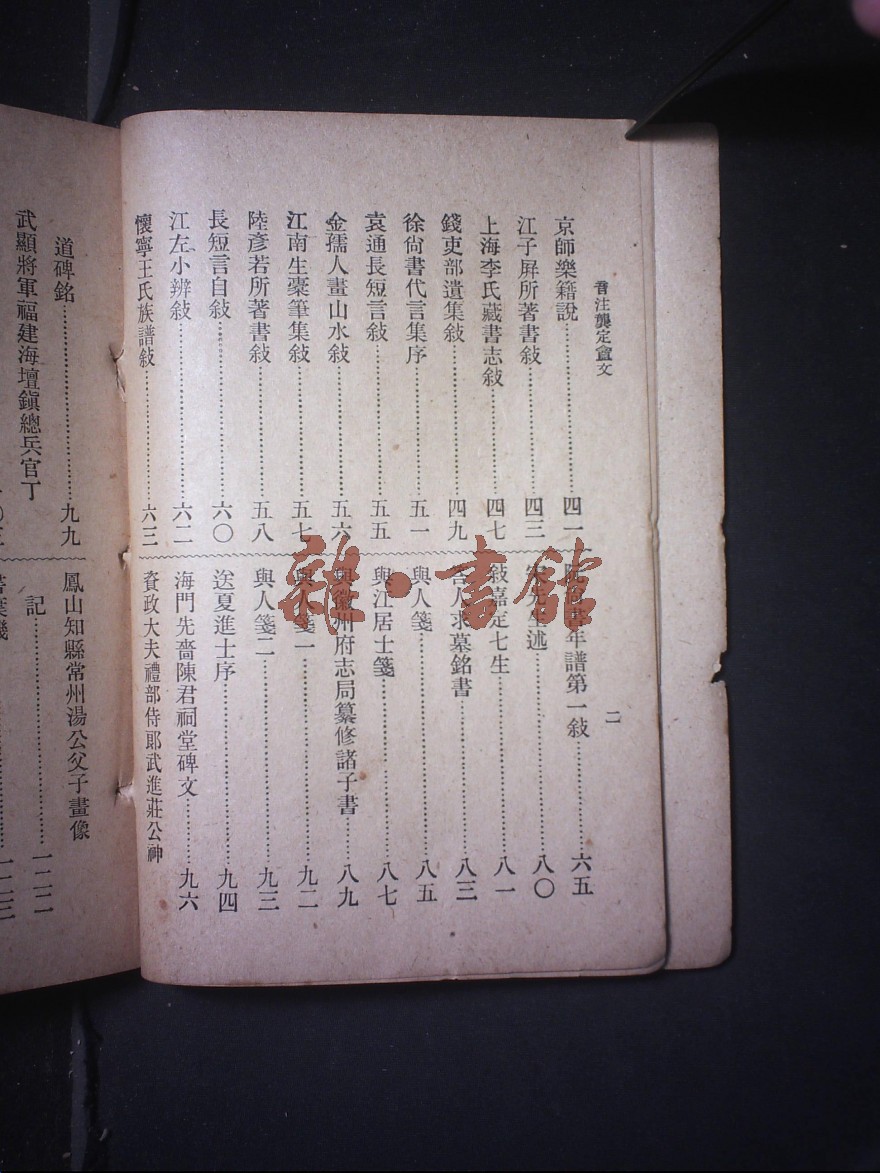 音注龔定盦文
二
京師樂籍說……四一
江子屏所著書敍……四三
上海李氏藏書志敍……四七
錢吏部遺集敍……四九
徐尙書代言集序……五一
袁通長短言敍……五五
金孺人畫山水敍……五六
江南生橐筆集敍……五七
陸彥若所著書敍……五八
長短言自敍……六〇
江左小辨敍……六二
懷寧王氏族譜敍……六三
阮尙書年譜第一敍……六五
宋先生述……八〇
敍嘉定七生……八一
答人求墓銘書……八三
與人箋……八五
與江居士箋……八七
與徽州府志局纂修諸子書……八九
與人箋一……九二
與人箋二……九三
送夏進士序……九四
海門先嗇陳君祠堂碑文……九六
資政大夫禮部侍郞武進莊公神
道碑銘……九九
武顯將軍福建海壇鎭總兵官丁
鳳山知縣常州湯公父子畫像
記……一二二
雜·書館